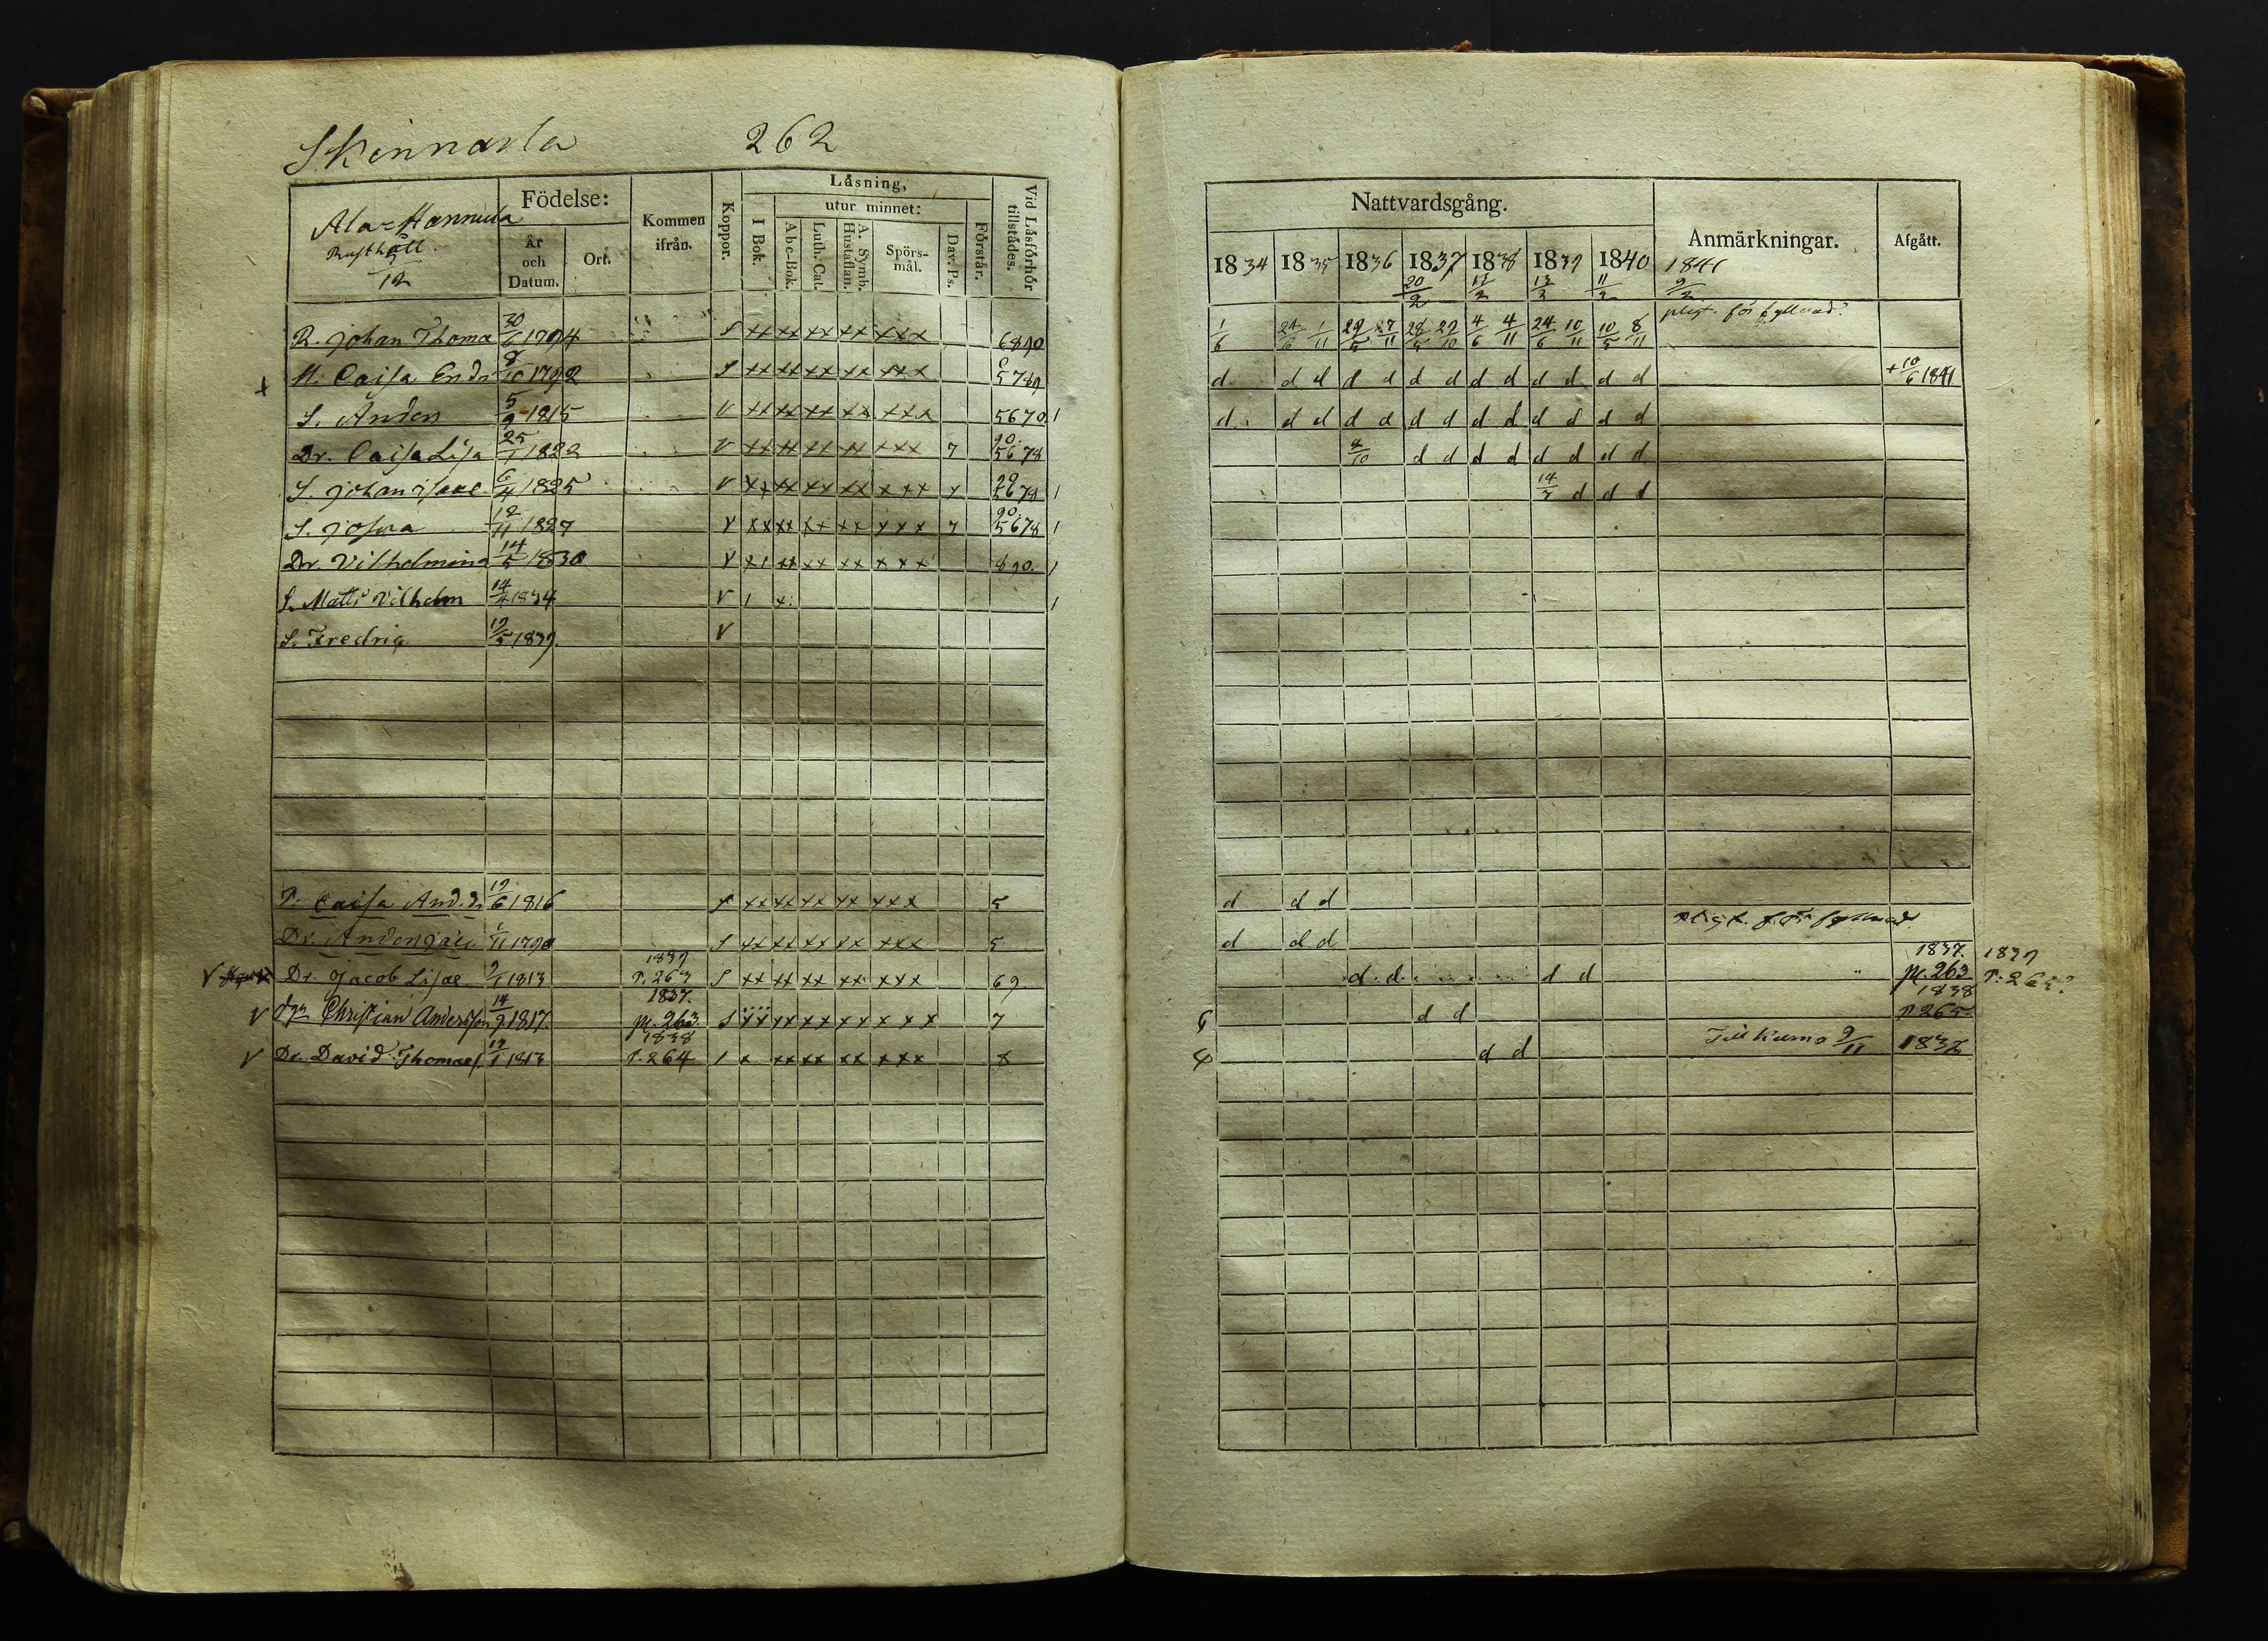 Skinnarla 262
Ala-Hannula
Rusthåll
12
Födelse:
År och Datum.
Ort.
Kommen ifrån.
Koppor.
Läsning,
I Bok.
utur minnet:
Abc-Bok.
Luth. Cat.
A. Symb. Hustaflan.
Spörs-mål.
Dav. Ps.
Förstår.
Vid Läsförhör tillstädes.
R. Johan Thoma 30/6 1794 S xx xx xx xx xxx 6890
H. Caisa Endr 8/10 1792 S xx xx xx xx xxx 5789
S. Anders 5/9 1815 V xx xx xx xx xxx 5670. 1
Dr. Caisa Lisa 25/1 1822 V xx xx xx xx xxx 7 90. 5678
S. Johan Isaac 6/4 1825 V xx xx xx xx xxx 5678 1
S. Josua 12/11 1827 V xx xx xx xx xxx 7 90. 5678 1
Dr. Vilhelmina 14/5 1830 V x1 xx xx xx xxx 890. 1
S. Matts Vilhelm 14/4 1834 V 1 x 1
S. Fredric 19/5 1839. V
P. Caisa And.dr 19/6 1816 xx xx xx xx xxx 5
Dr. Anders 1790 S xx xx xx xx xxx 5
V Dr. Jacob Lisae 9/1 1813 1839 P. 263 S xx xx xx xx xxx 69
V Christian Anderss 14/9 1817. 1837. pl. 263. S xx xx xx xx xxx 7
V Dr. David Thomass. 19/1 1813 1838 P. 264 1 x xx xx xx xxx 8
Nattvardsgång.
Anmärkningar.
Afgått.
1834 1835 1836 1837 1838 1839 1840 1841
20/2 12/2 13/2 11/2 9/2
pligt. för fylleri?
1/6 24/6 1/11 29/5 27/11 28/5 29/10 4/6 4/11 24/6 10/11 10/5 8/11
d d d d d d d d d d d d d + 10/6 1841
d d d d d d d d d d d d d
4/10 d d d d d d d d
14/7 d d d
d d d
pligt. för
d d d
d d d d 1837. pl. 263 1839 P. 265?
d d 1838 P 265
d d Till Kumo 9/11 1838